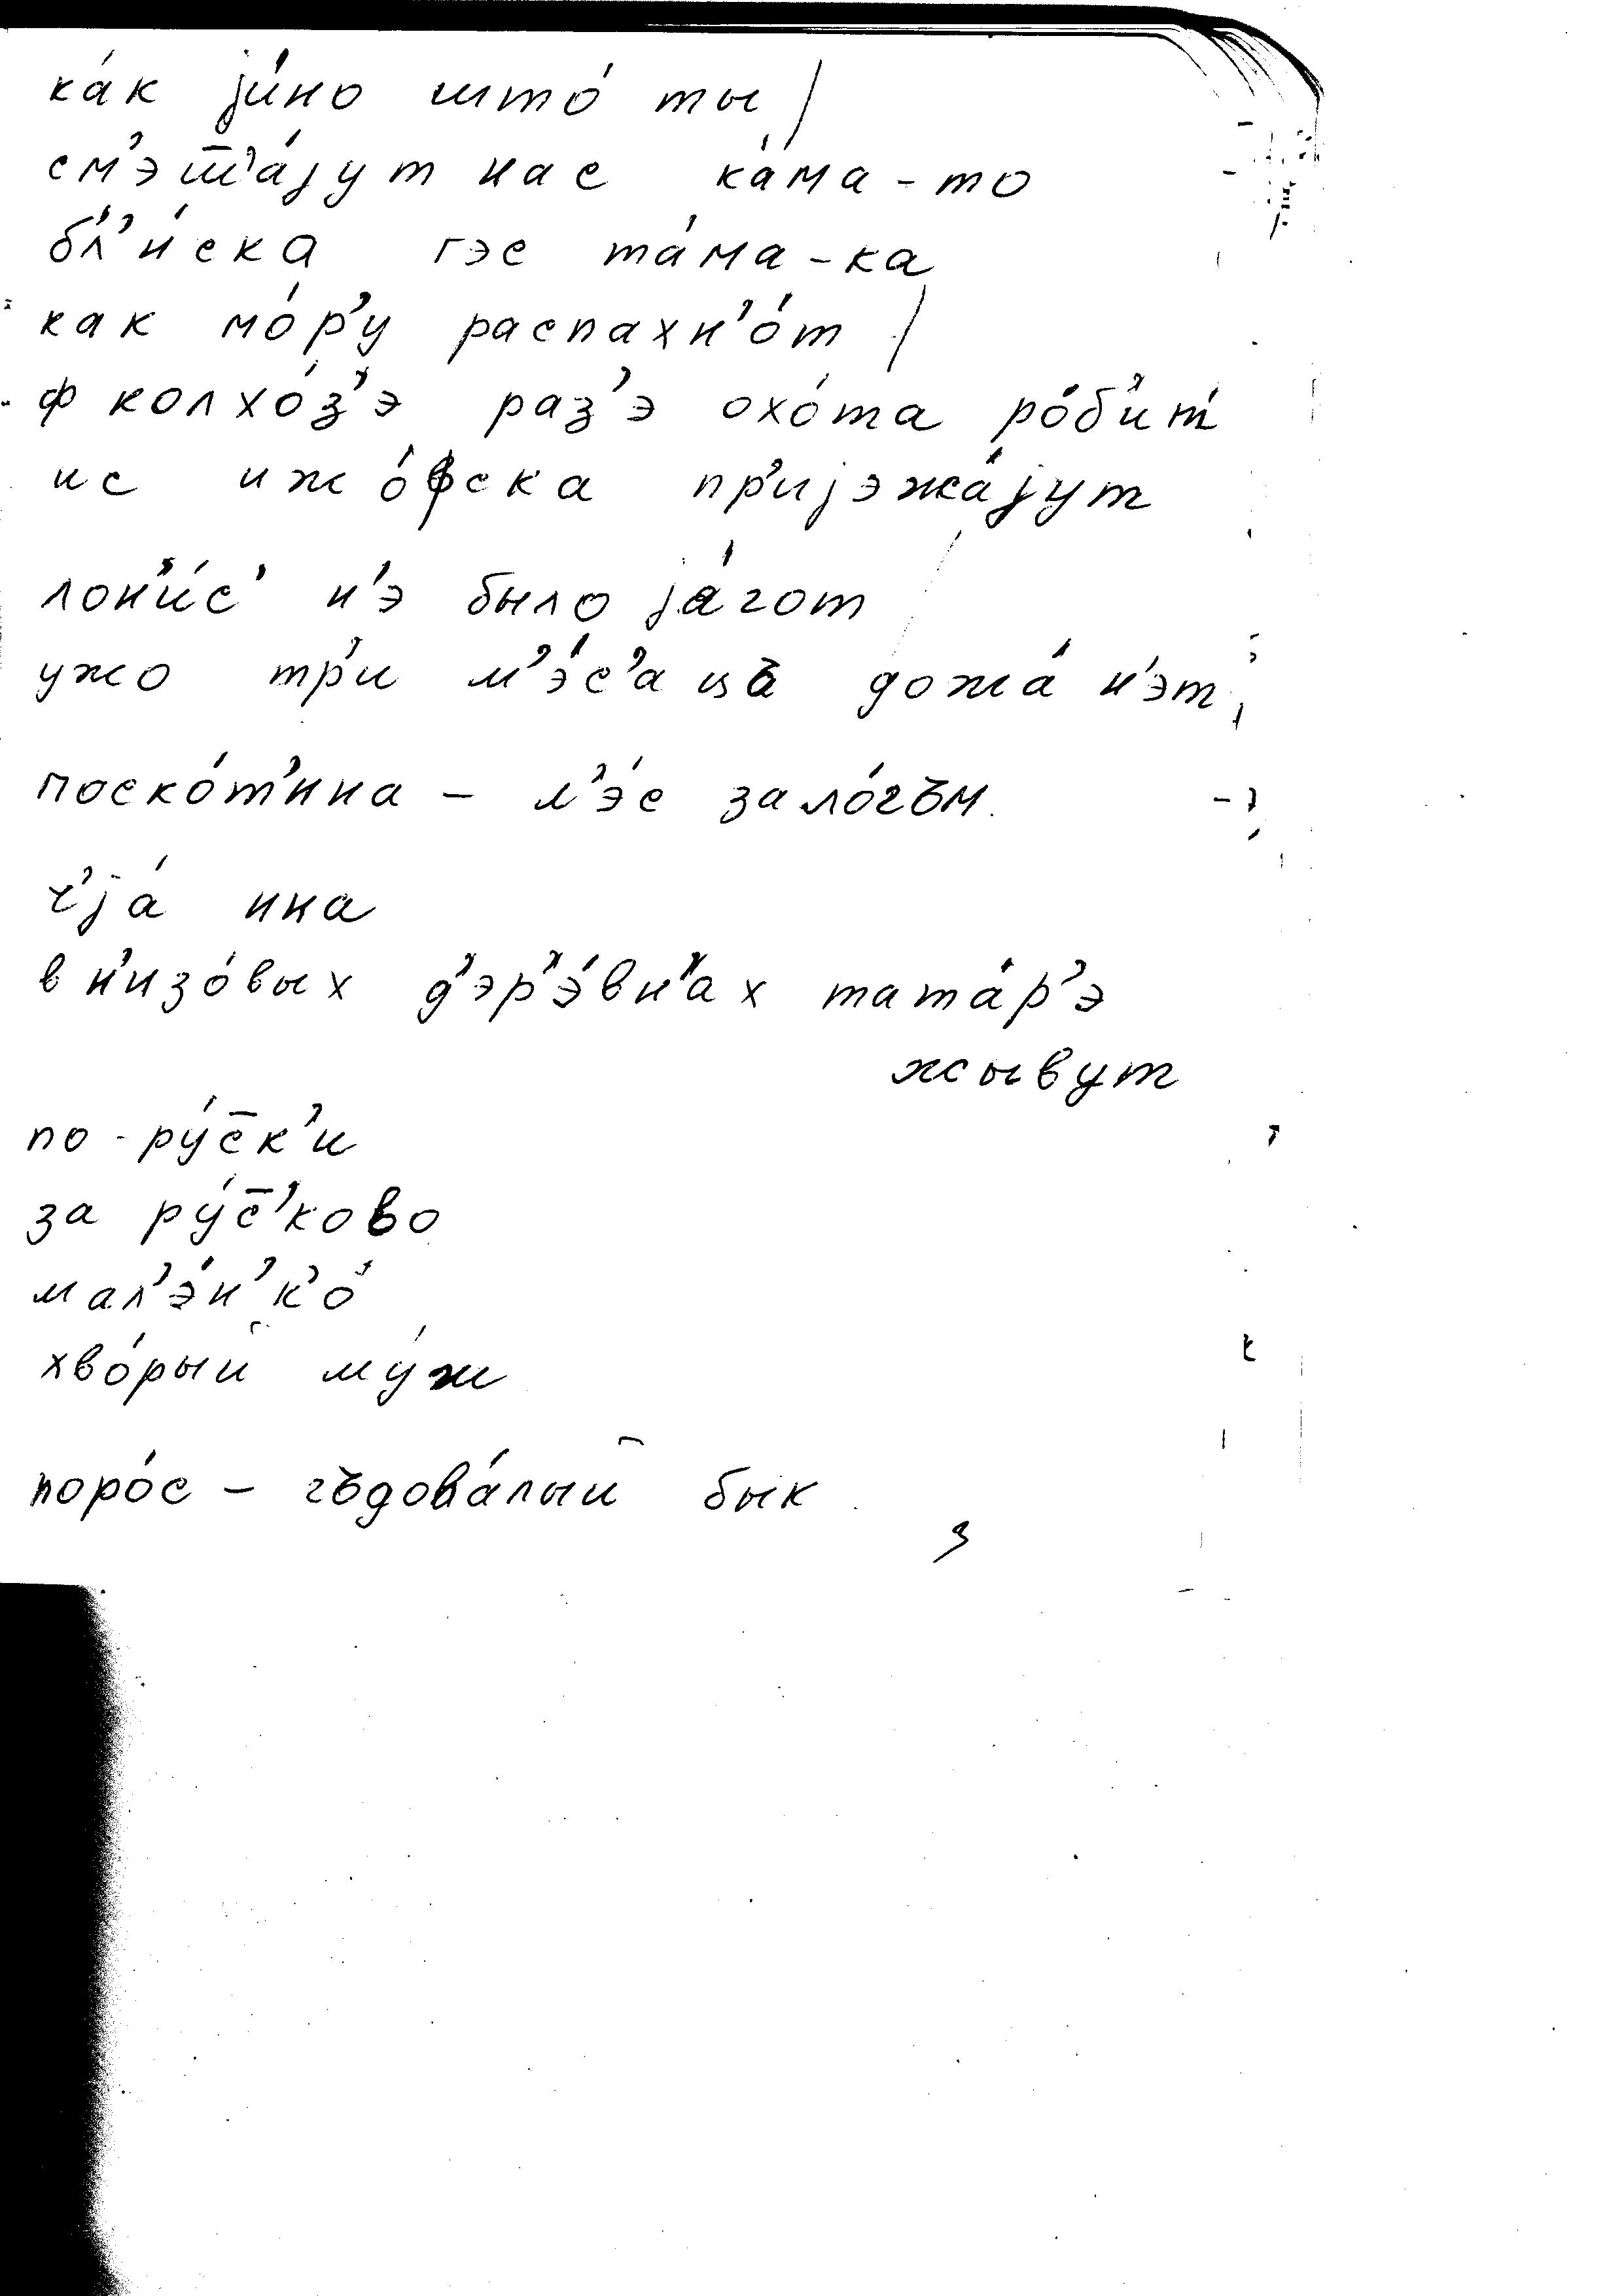 ка́к jи́но што́ ты /
см'эш̅'а́jут нас ка́ма-то
бл'и́ска гэс та́ма-ка
как мо́р'у распахн'о́т /
ф колхо́з'э раз'э охо́та ро́б'ит'
ис ижо́фска пр'иjэжа́jут
лон'и́с' н'э было jа́гот
ужо тр'и м'э́с'аца дожа́ н'эт
поско́т'ина – л'э́с зало́гъм.
ч'jа́ ина
в н'изо́вых д'эр'э́вн'ах тата́р'э
жывут
по-ру́с̅к'и
за ру́с̅'ково
мал'э́н'к'о́
хво́рый му́ж
поро́с – гъдова́лый бык